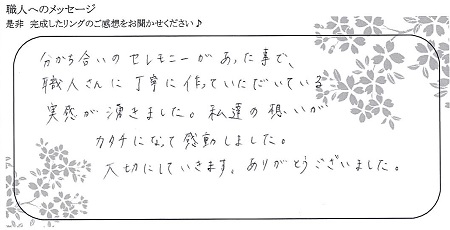 職人へのメッセージ
是非 完成したリングのご感想をお聞かせください♪
分かち合いのセレモニーがあった事で、
職人さんに丁寧に作っていただいている
実感が湧きました。私達の想いが
カタチになって感動しました。
大切にしていきます。ありがとうございました。